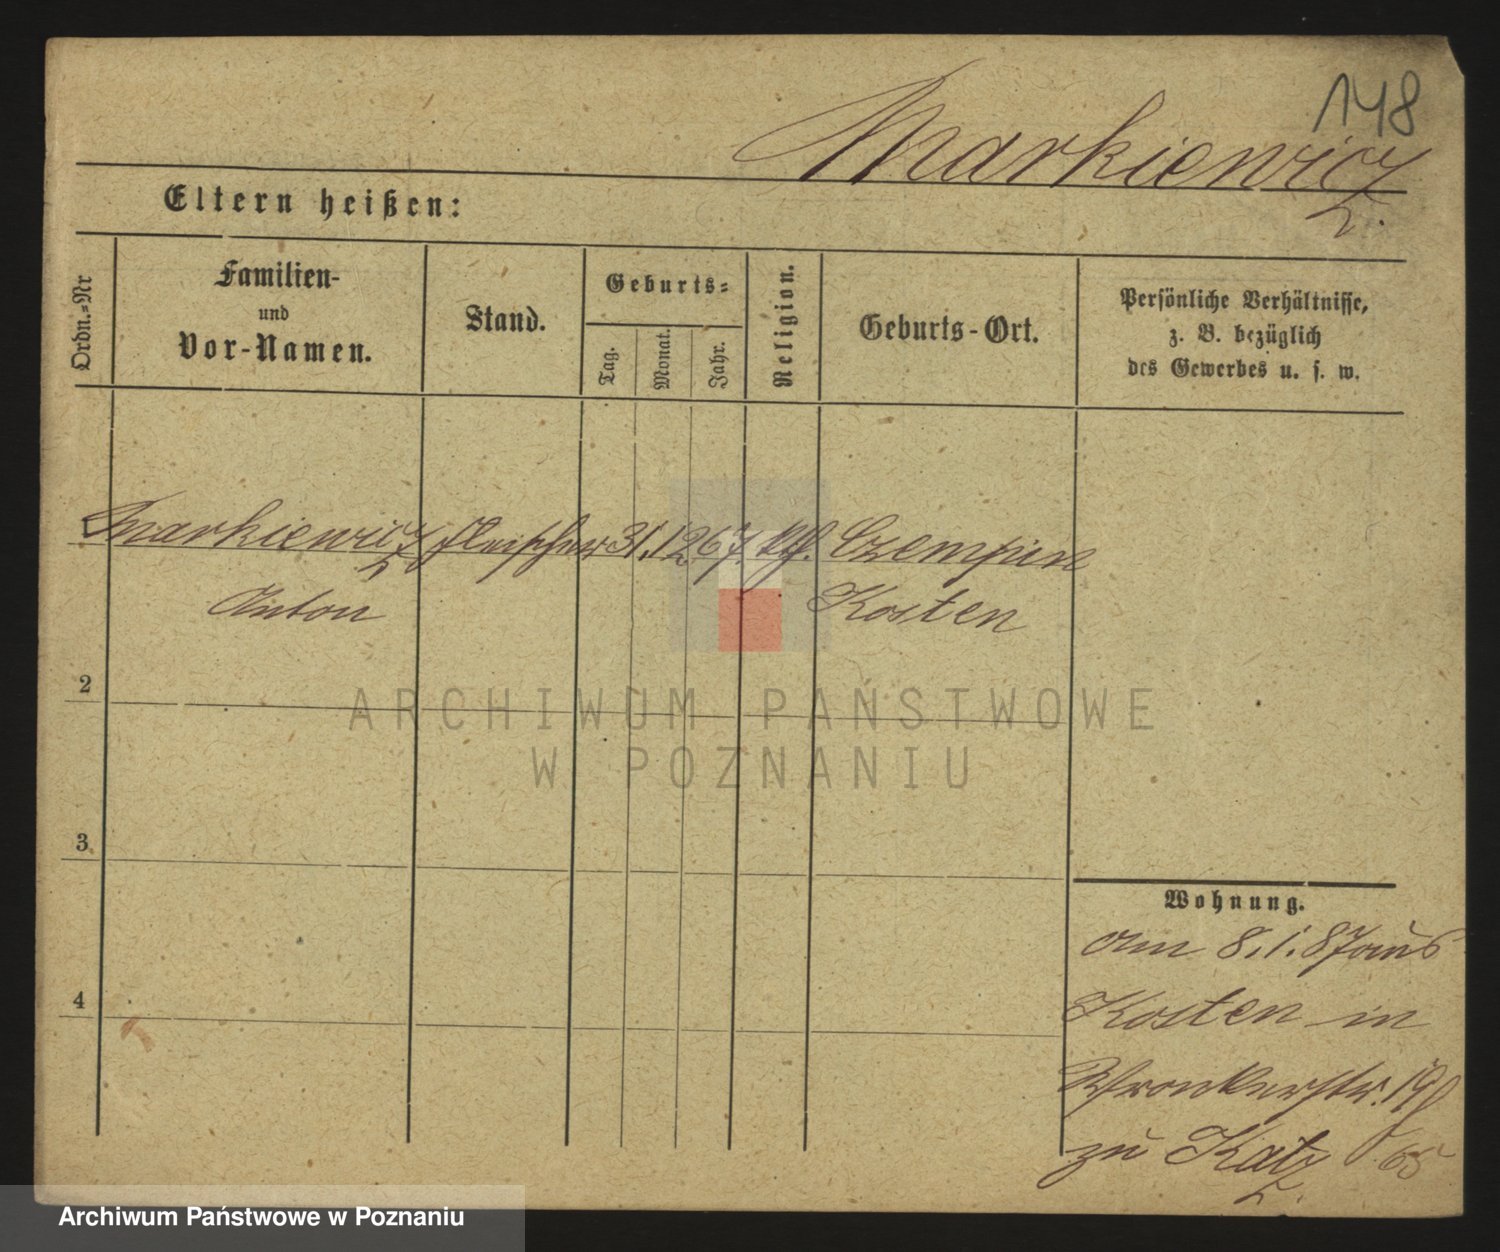 148
Markiewicz
Eltern heißen:
Ordn.=Nr
Familien-
und
Vor-Namen.
Stand.
Geburts=
Tag.
Monat.
Jahr.
Religion.
Geburts-Ort.
Persönliche Verhältnisse,
z. B. bezüglich
des Gewerbes u. s. w.
Markiewicz Fleischer 31. 12 67. kth. Czempin
Anton Kosten
2
ARCHIWUM PAŃSTWOWE
W POZNANIU
3
4
Wohnung.
Am 8.1.87 aus
Kosten in
Wronkerstr. 19
zu Katz 65
Archiwum Państwowe w Poznaniu